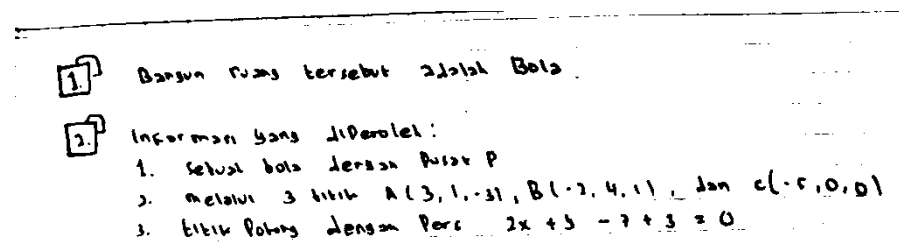 1. Bangun ruang tersebut adalah Bola.
2. Informasi yang diperoleh:
1. Sebuah bola dengan Pusat P
2. melalui 3 titik A(3,1,-3), B(-2,4,1), dan C(-5,0,0)
3. titik Potong dengan Pers 2x + y - z + 3 = 0